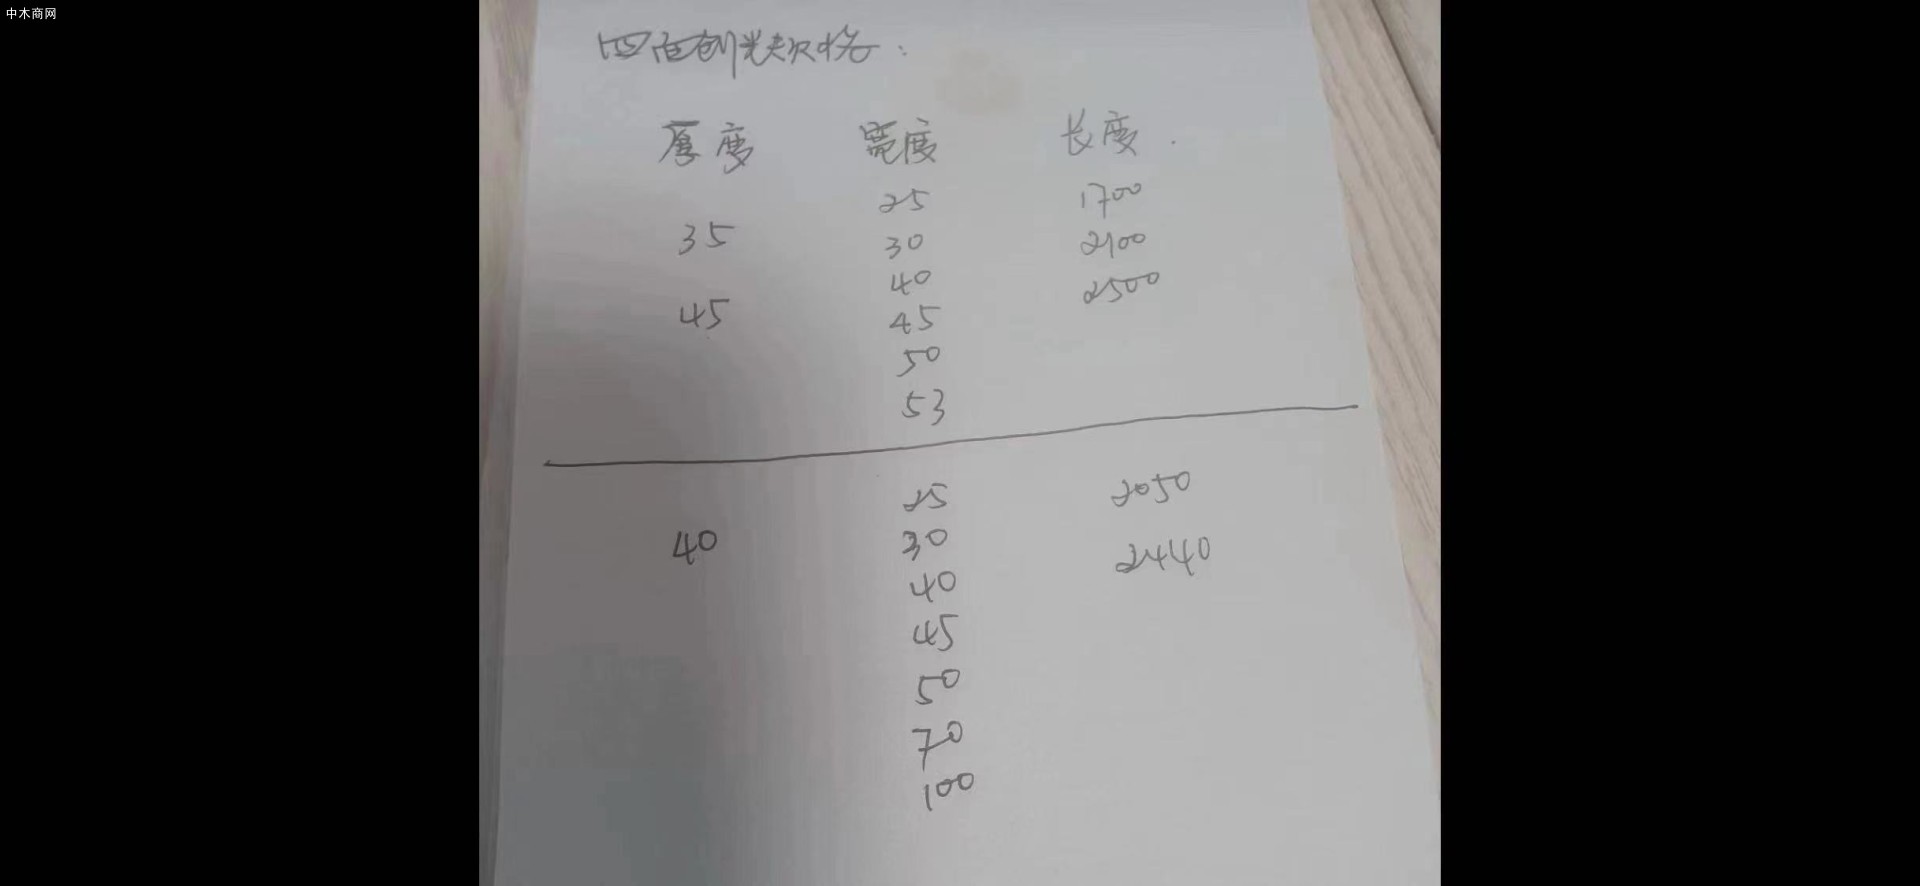 中木商网
四面刨光规格：
厚度 宽度 长度.
25 1700
35 30 2100
40 2500
45 45
50
53
25 2050
40 30 2440
40
45
50
70
100